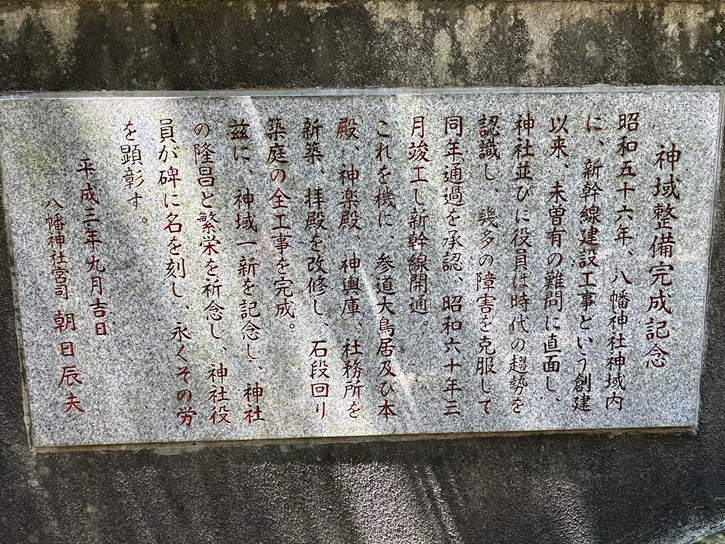 神域整備完成記念
昭和五十六年、八幡神社神域内
に、新幹線建設工事という創建
以来、未曽有の難問に直面し、
神社並びに役員は時代の趨勢を
認識し、幾多の障害を克服して
同年通過を承認、昭和六十年三
月竣工し新幹線開通。
これを機に、参道大鳥居及び本
殿、神楽殿、神輿庫、社務所を
新築、拝殿を改修し、石段回り
築庭の全工事を完成。
茲に、神域一新を記念し、神社
の隆昌と繁栄を祈念し、神社役
員が碑に名を刻し、永くその労
を顕彰す。
平成三年九月吉日
八幡神社宮司 朝日辰夫